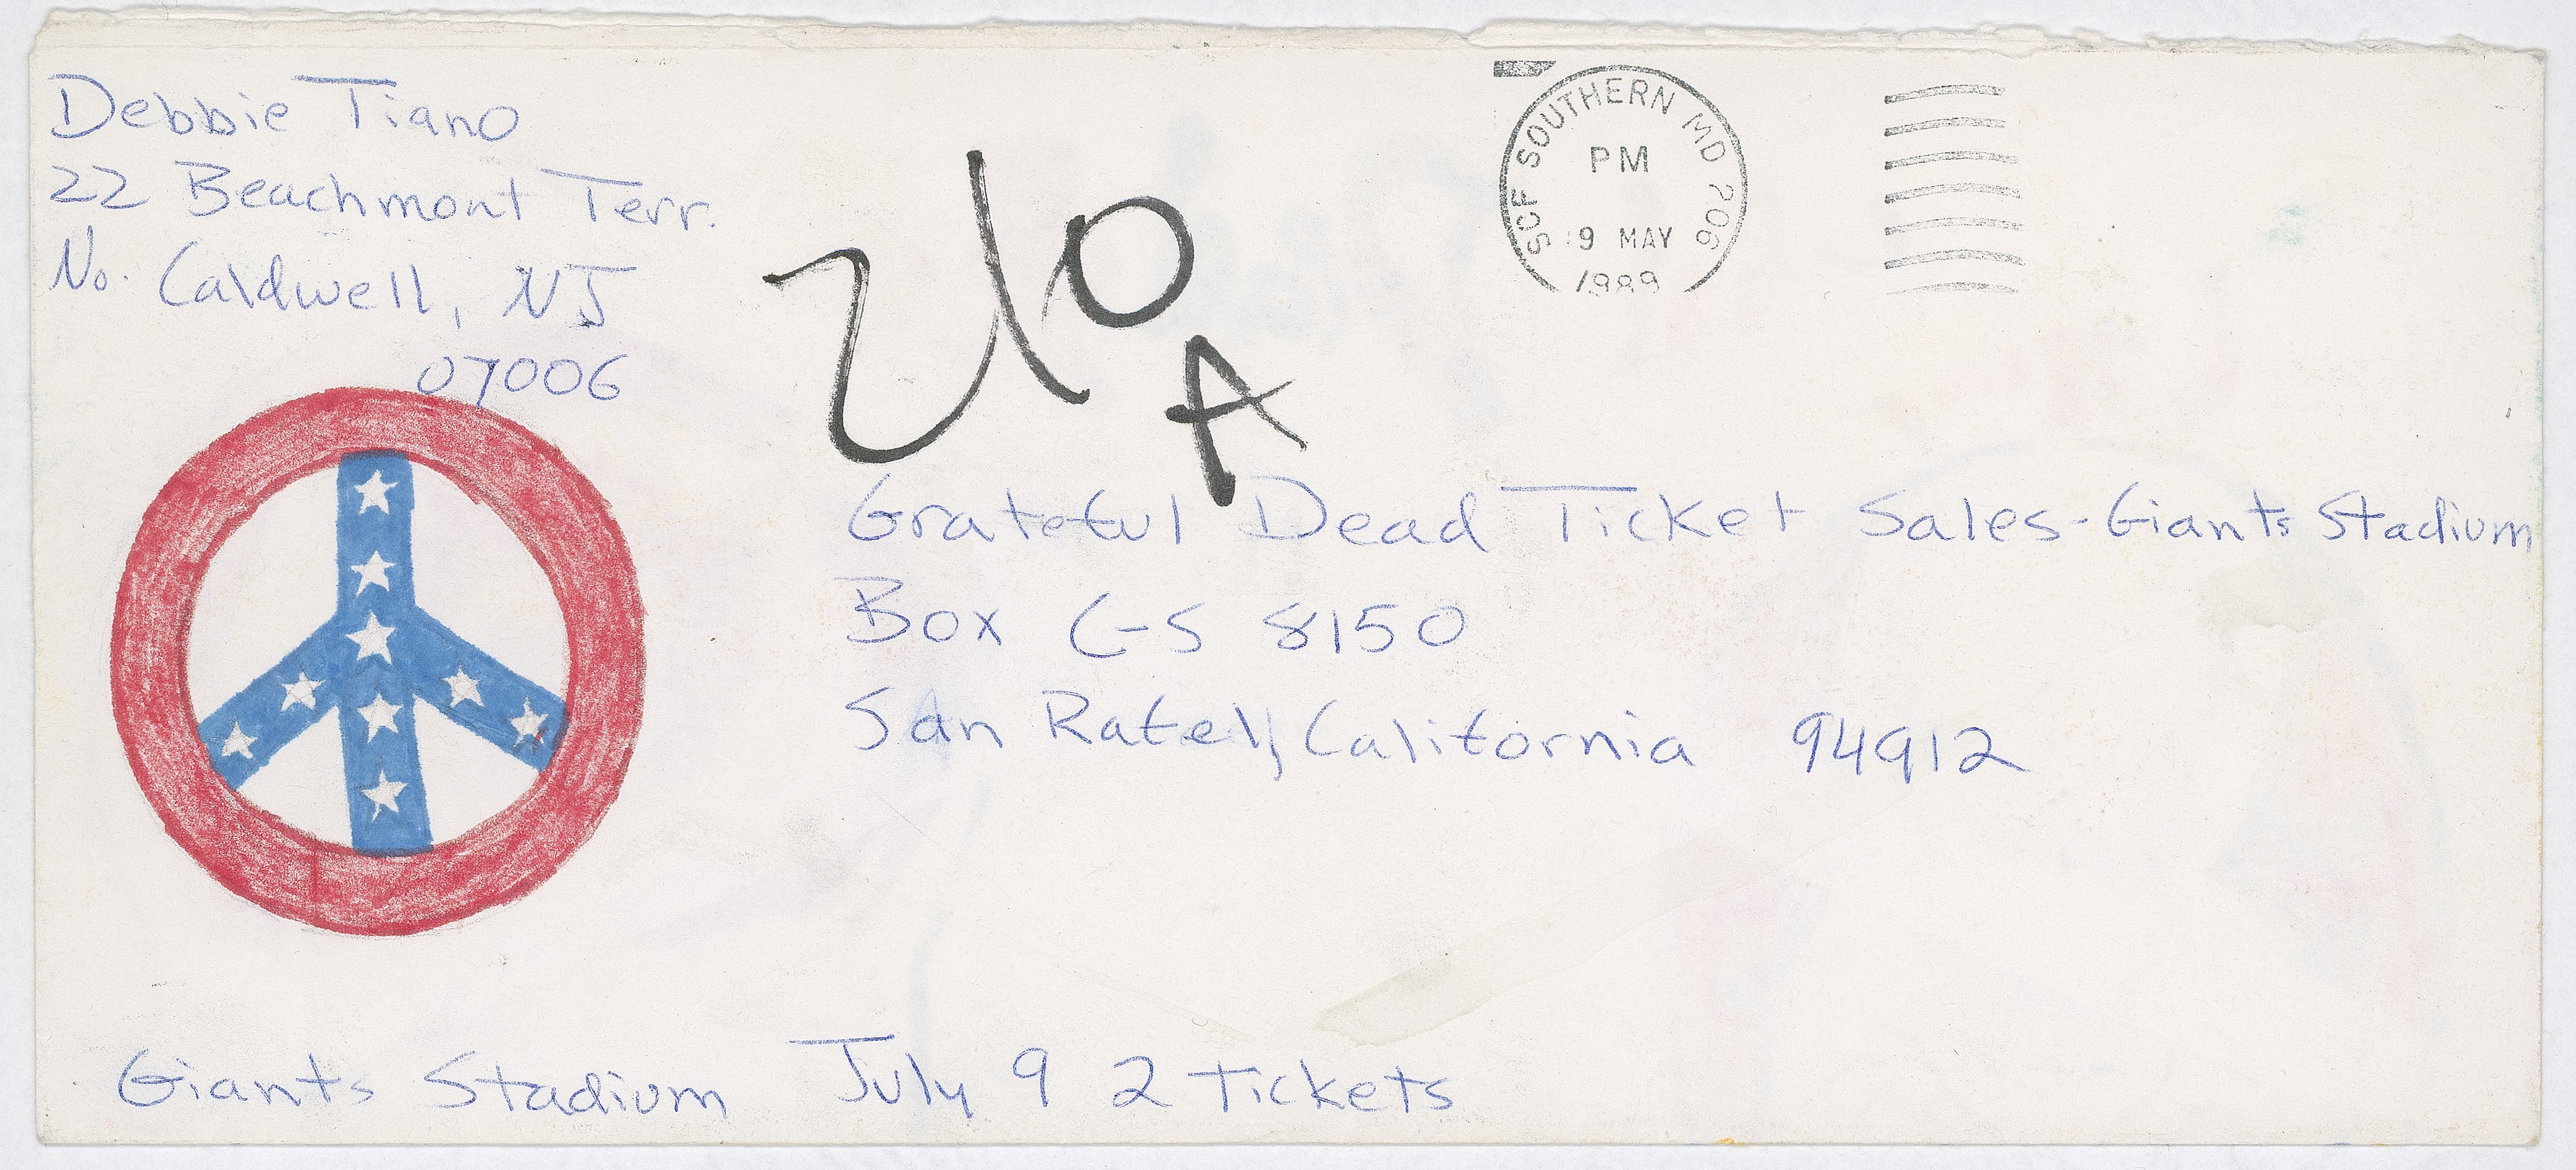 Debbie Tiano
22 Beachmont Terr.
No. Caldwell, NJ
07006
SCF SOUTHERN MD 206
PM
9 MAY
1989
Grateful Dead Ticket Sales-Giants Stadium
Box GS 8150
San Rafel, California 94912
Giants Stadium July 9 2 tickets